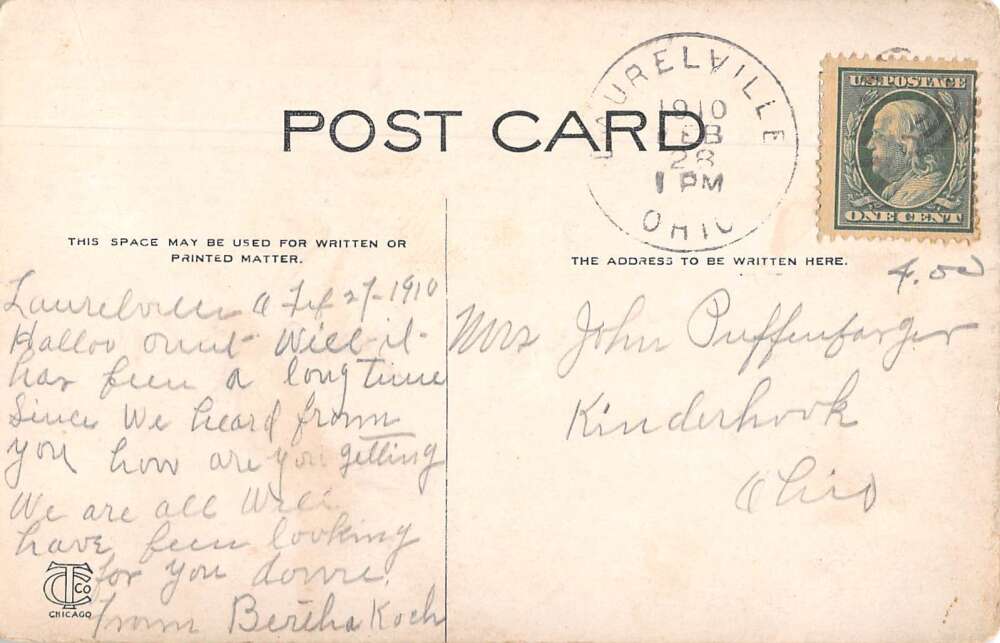 LAURELVILLE
1910
FEB
28
1 PM
OHIO
U.S. POSTAGE
ONE CENT
POST CARD
THIS SPACE MAY BE USED FOR WRITTEN OR
PRINTED MATTER.
THE ADDRESS TO BE WRITTEN HERE.
4.00
Laurelville O Feb 27-1910
Halloo ount Will it
has been a long time
Since We heard from
you how are you getting
We are all Well
have been looking
for you down.
from Bertha Koch
Mrs John Puffenbarger
Kinderhook
Ohio
TC CO
CHICAGO